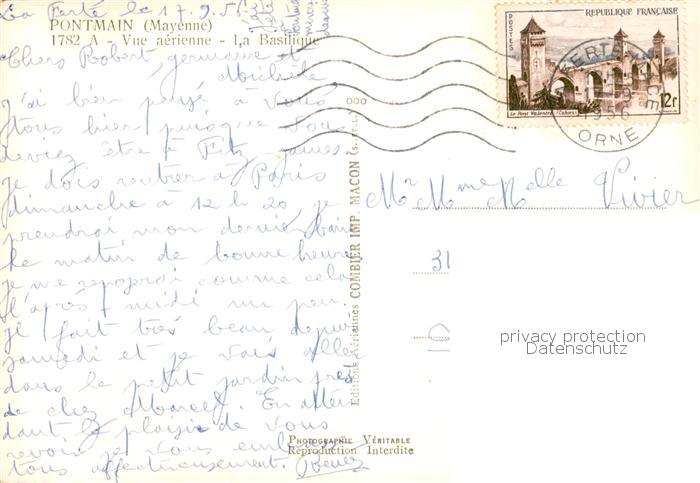 La Ferté le 17.9.56
PONTMAIN (Mayenne)
1782 A - Vue aérienne - La Basilique
Chers Robert, germaine et
Michèle,
j'ai bien pensé à vous
tous hier puisque vous
deviez être à Fitz james.
je dois rentrer à Paris
dimanche à 12 h 20 je
prendrai mon dernier bain
le matin de bonne heure
je me reposerai comme cela
l'après midi un peu.
Il fait très beau depuis
samedi et je vais aller
dans le petit jardin près
de chez Marcel. En atten
dant le plaisir de vous
revoir je vous embrasse
tous affectueusement.
Editions aériennes COMBIER IMP. MACON (S.-et-L.)
PHOTOGRAPHIE VÉRITABLE
Reproduction Interdite
REPUBLIQUE FRANÇAISE
POSTES
12F
Le Pont Valentré (Cahors)
1956
ORNE
Mr Mme Melle Vivier
31
privacy protection
Datenschutz